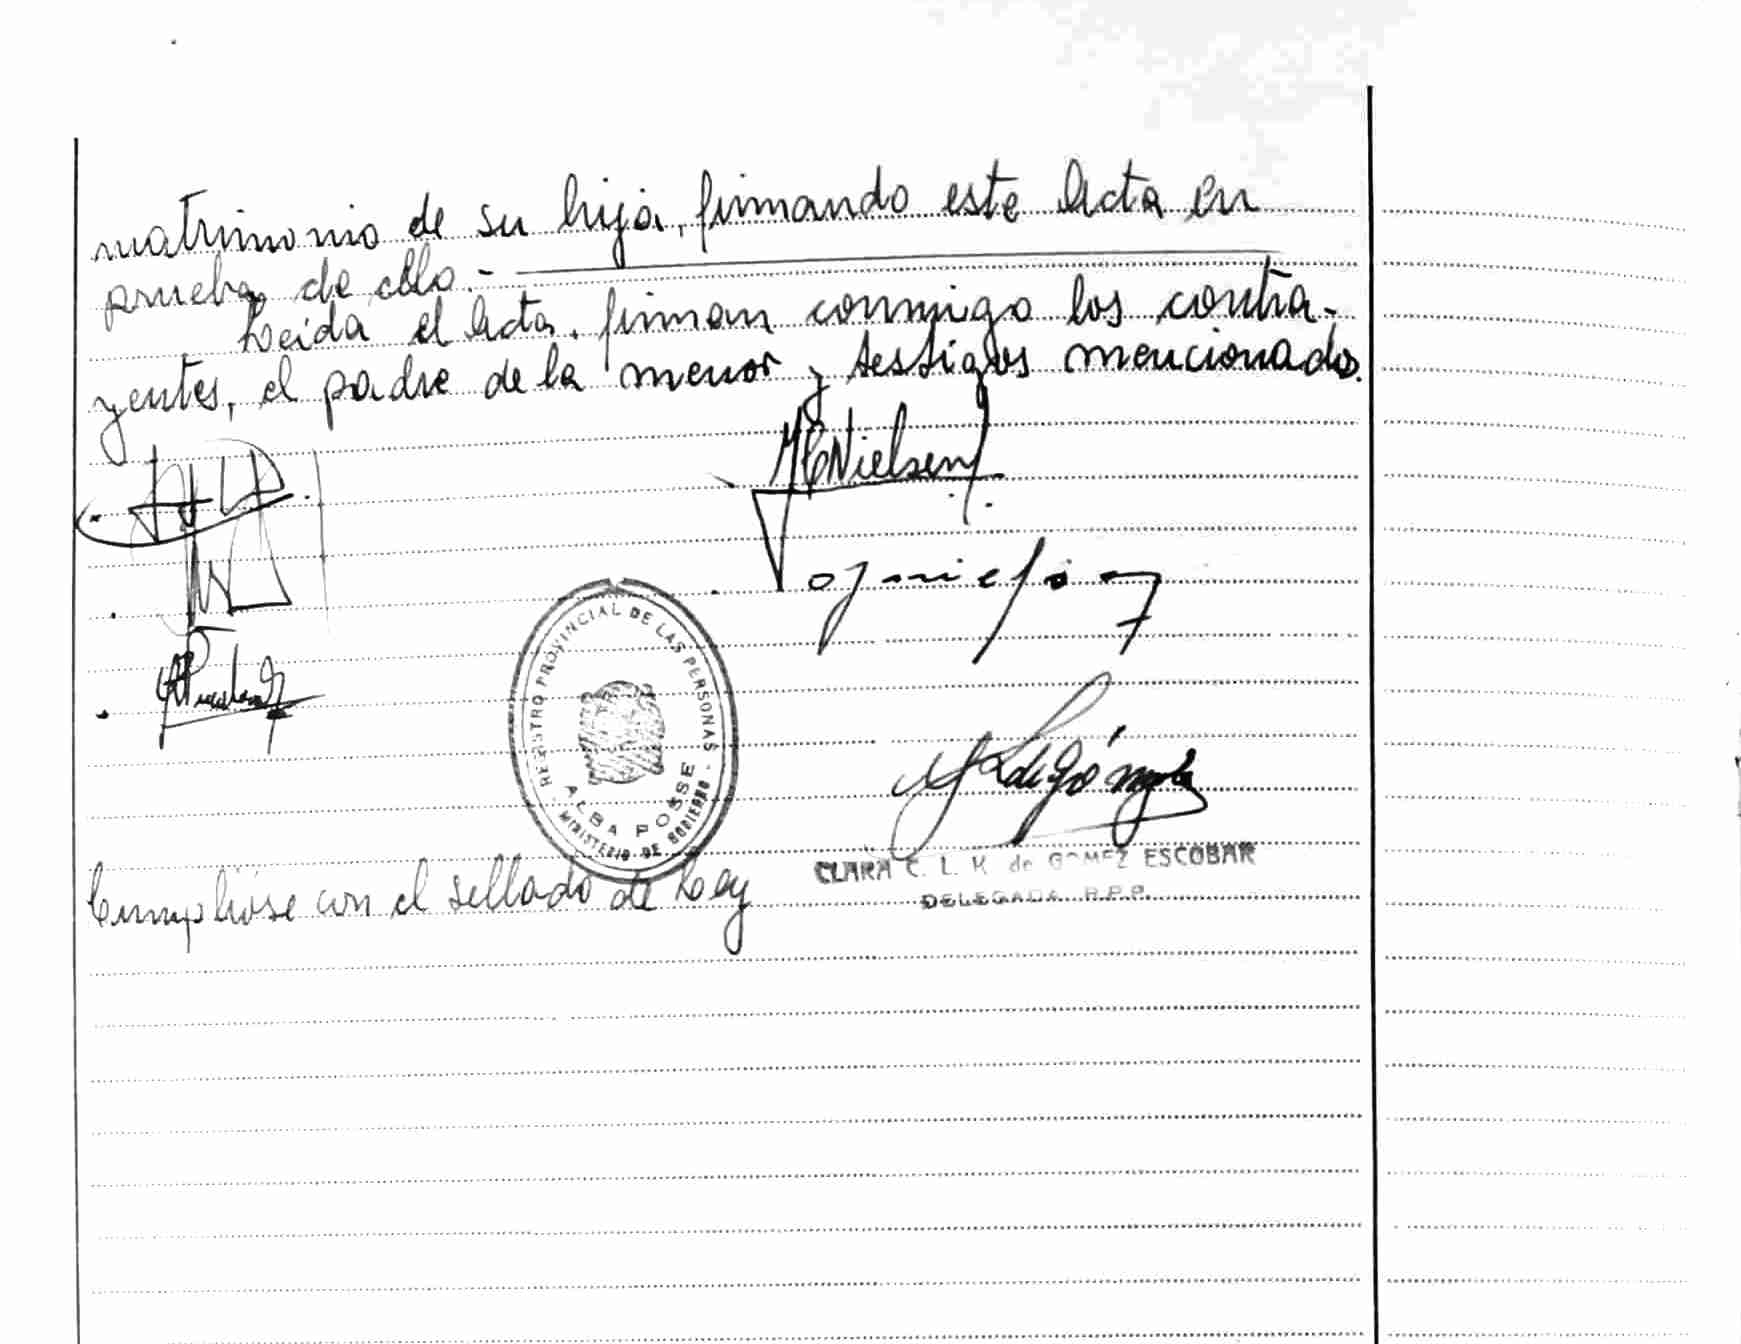 matrimonio de su hija, firmando este Acta en
prueba de ello.-
Leída el Acta, firman conmigo los contra-
yentes, el padre de la menor y testigos mencionados.
MCNielsen
REGISTRO PROVINCIAL DE LAS PERSONAS
ALBA POSSE
- MINISTERIO DE GOBIERNO -
CLARA C. L. K. de GOMEZ ESCOBAR
DELEGADA R.P.P.
Cumplióse con el sellado de Ley